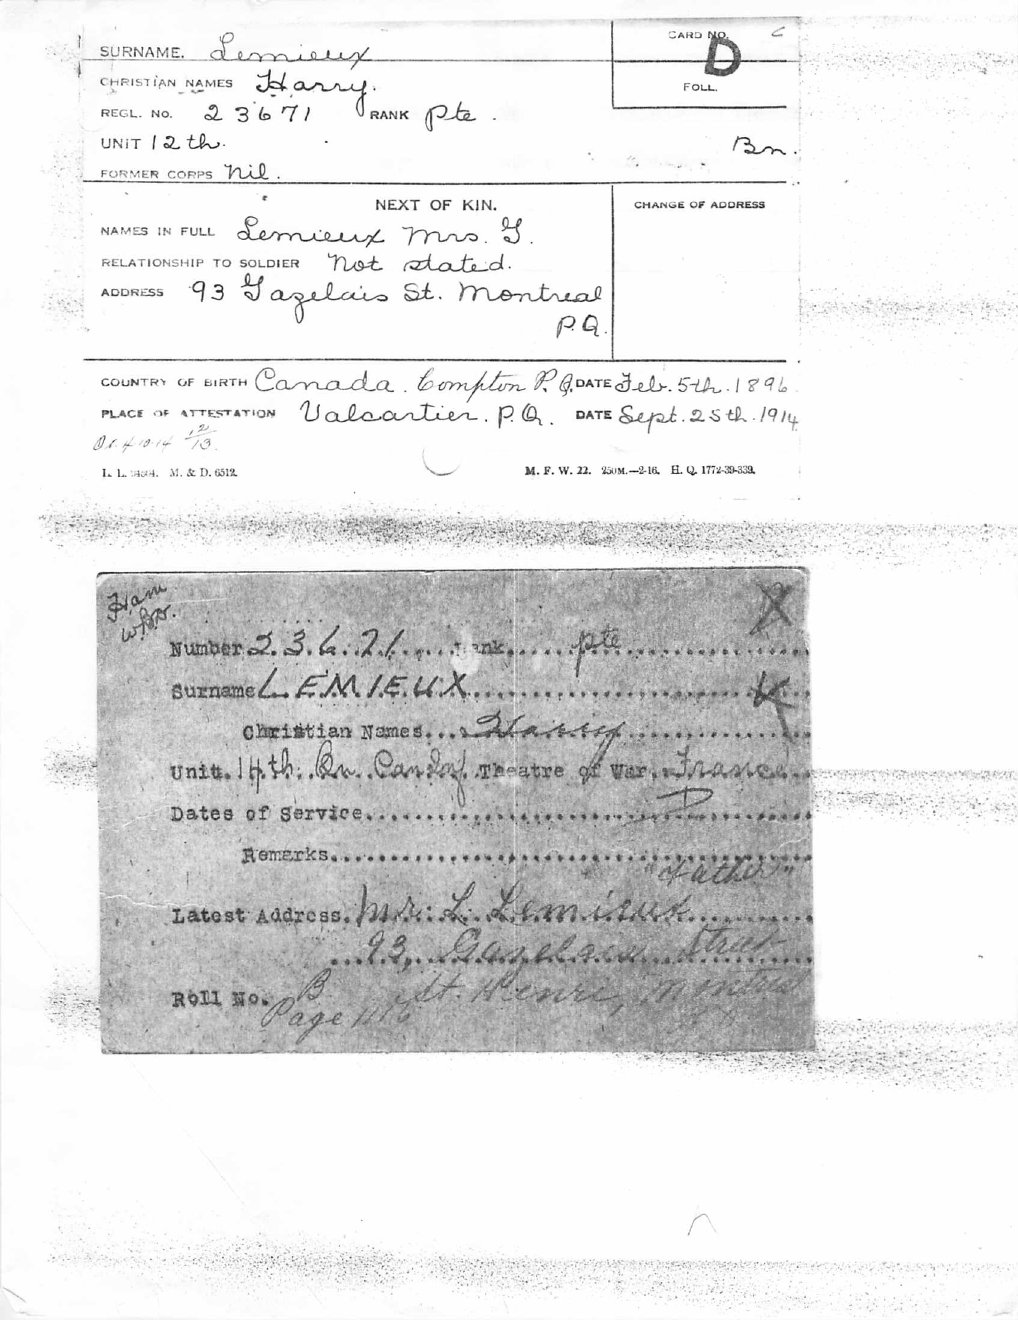 SURNAME. Lemieux
CARD NO. D
CHRISTIAN NAMES Harry.
FOLL.
REGL. NO. 23671 RANK Pte.
UNIT 12th. Bn.
FORMER CORPS Nil.
NEXT OF KIN.
CHANGE OF ADDRESS
NAMES IN FULL Lemieux Mrs. G.
RELATIONSHIP TO SOLDIER Not stated.
ADDRESS 93 Gazelais St. Montreal
P.Q.
COUNTRY OF BIRTH Canada. Compton P.Q. DATE Feb. 5th. 1896
PLACE OF ATTESTATION Valcartier. P.Q. DATE Sept. 25th. 1914
4-10-14
M. & D. 6512.
M. F. W. 22. 250M.—2-16. H. Q. 1772-39-339.
Number 23671 Rank Pte
Surname LEMIEUX
Christian Names Harry
Unit. 14th. Bn. Theatre of War. France
Dates of Service D
Remarks
"Father"
Latest Address. Mr. L. Lemieux
93, Gazelais Street
Roll No. B St. Henri, Montreal
Page